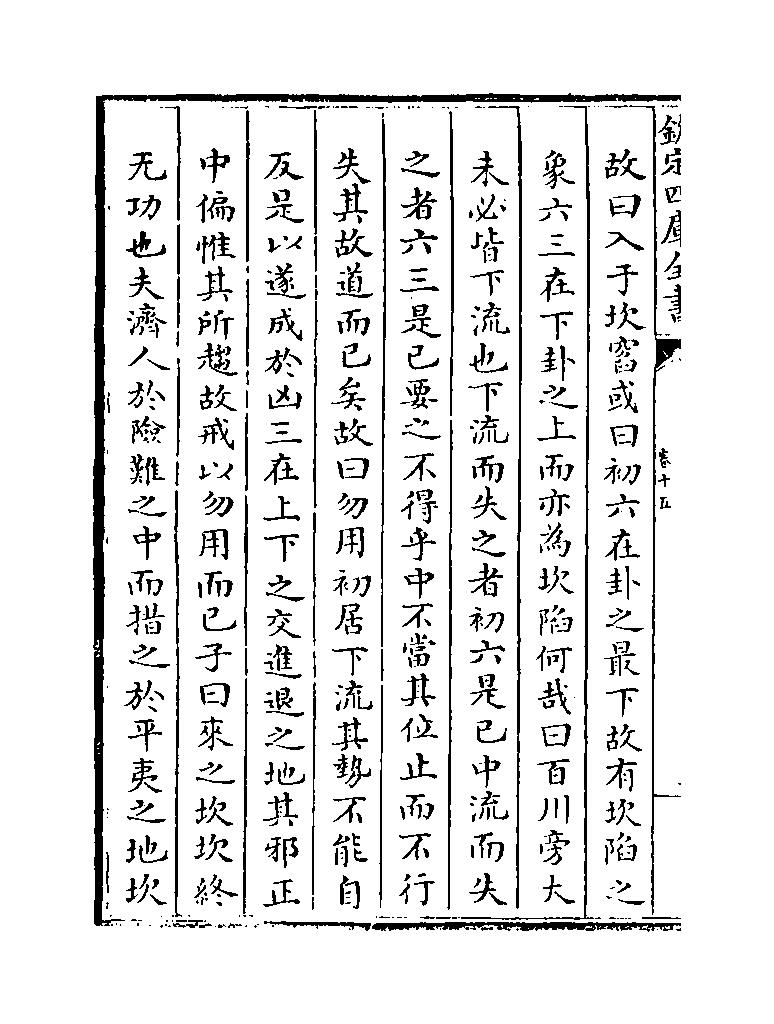 欽定四庫全書
卷十五
故曰入于坎窞或曰初六在卦之最下故有坎陷之
象六三在下卦之上而亦為坎陷何哉曰百川旁大
未必皆下流也下流而失之者初六是已中流而失
之者六三是已要之不得乎中不當其位止而不行
失其故道而已矣故曰勿用初居下流其勢不能自
反是以遂成於凶三在上下之交進退之地其邪正
中偏惟其所趨故戒以勿用而已子曰來之坎坎終
无功也夫濟人於險難之中而措之於平夷之地坎